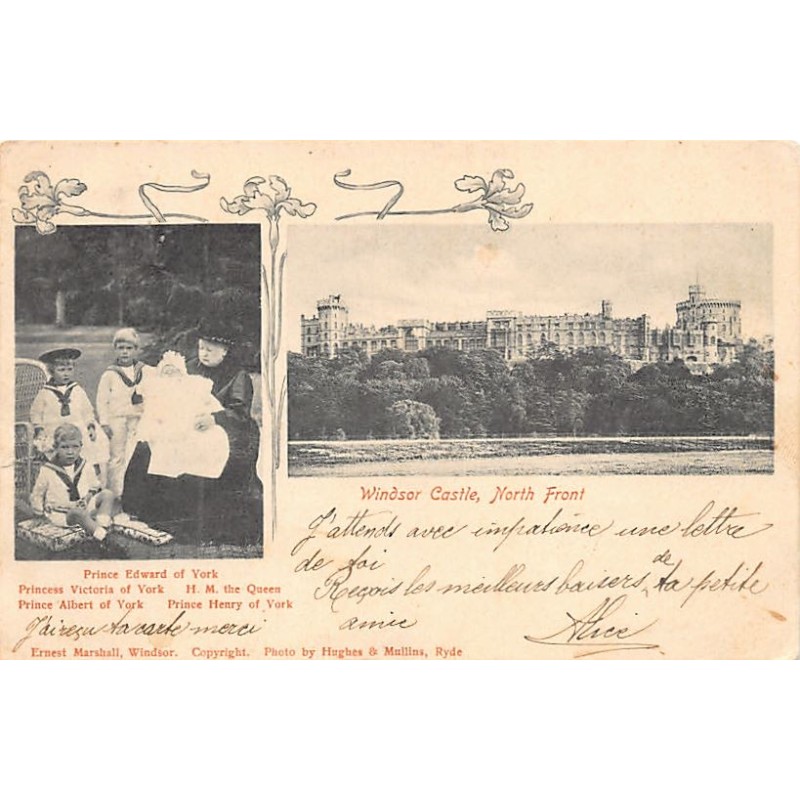 Prince Edward of York
Princess Victoria of York H. M. the Queen
Prince Albert of York Prince Henry of York
J'ai reçu ta carte merci
Ernest Marshall, Windsor. Copyright. Photo by Hughes & Mullins, Ryde
Windsor Castle, North Front
J'attends avec impatience une lettre
de toi
Reçois les meilleurs baisers de ta petite
amie
Alice